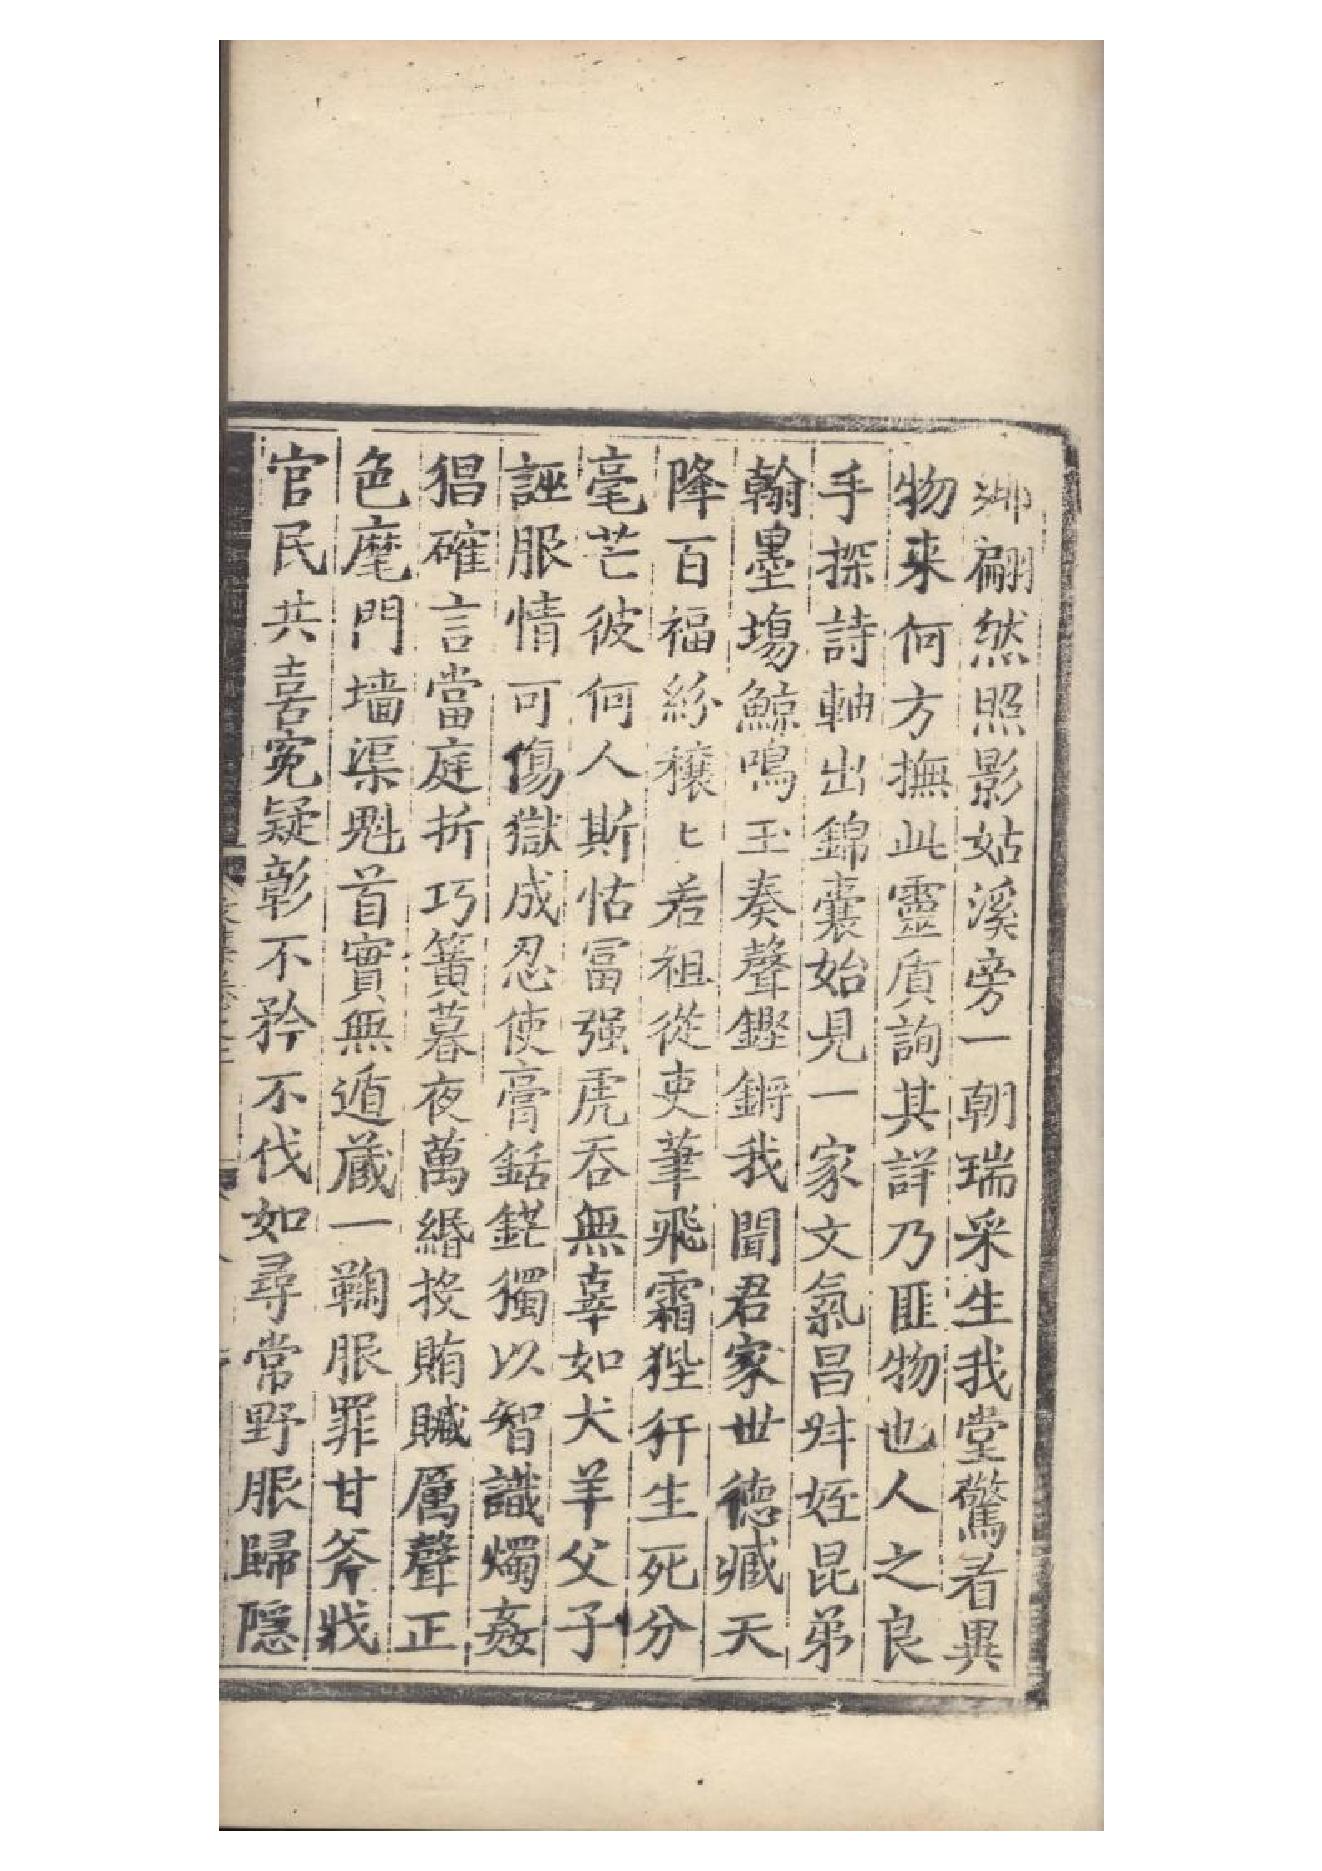 鄉翩然照影姑溪旁一朝瑞采生我堂驚看異
物来何方撫此靈质詢其詳乃匪物也人之良
手探詩軸出錦囊始見一家文氣昌舛姪昆弟
翰墨塲鯨鳴玉奏聲鏗鏘我聞君家世德臧天
降百福紛穰匕若祖從吏筆飛霜狴犴生死分
毫芒彼何人斯怙冨强虎吞無辜如犬羊父子
誣服情可傷獄成忍使膏銛鋩獨以智識燭姦
猖確言當庭折巧簧暮夜萬緡投賄贓厲聲正
色麾門墙渠魁首實無遁蔵一鞠服罪甘斧戕
官民共喜寃疑彰不矜不伐如尋常野服歸隱